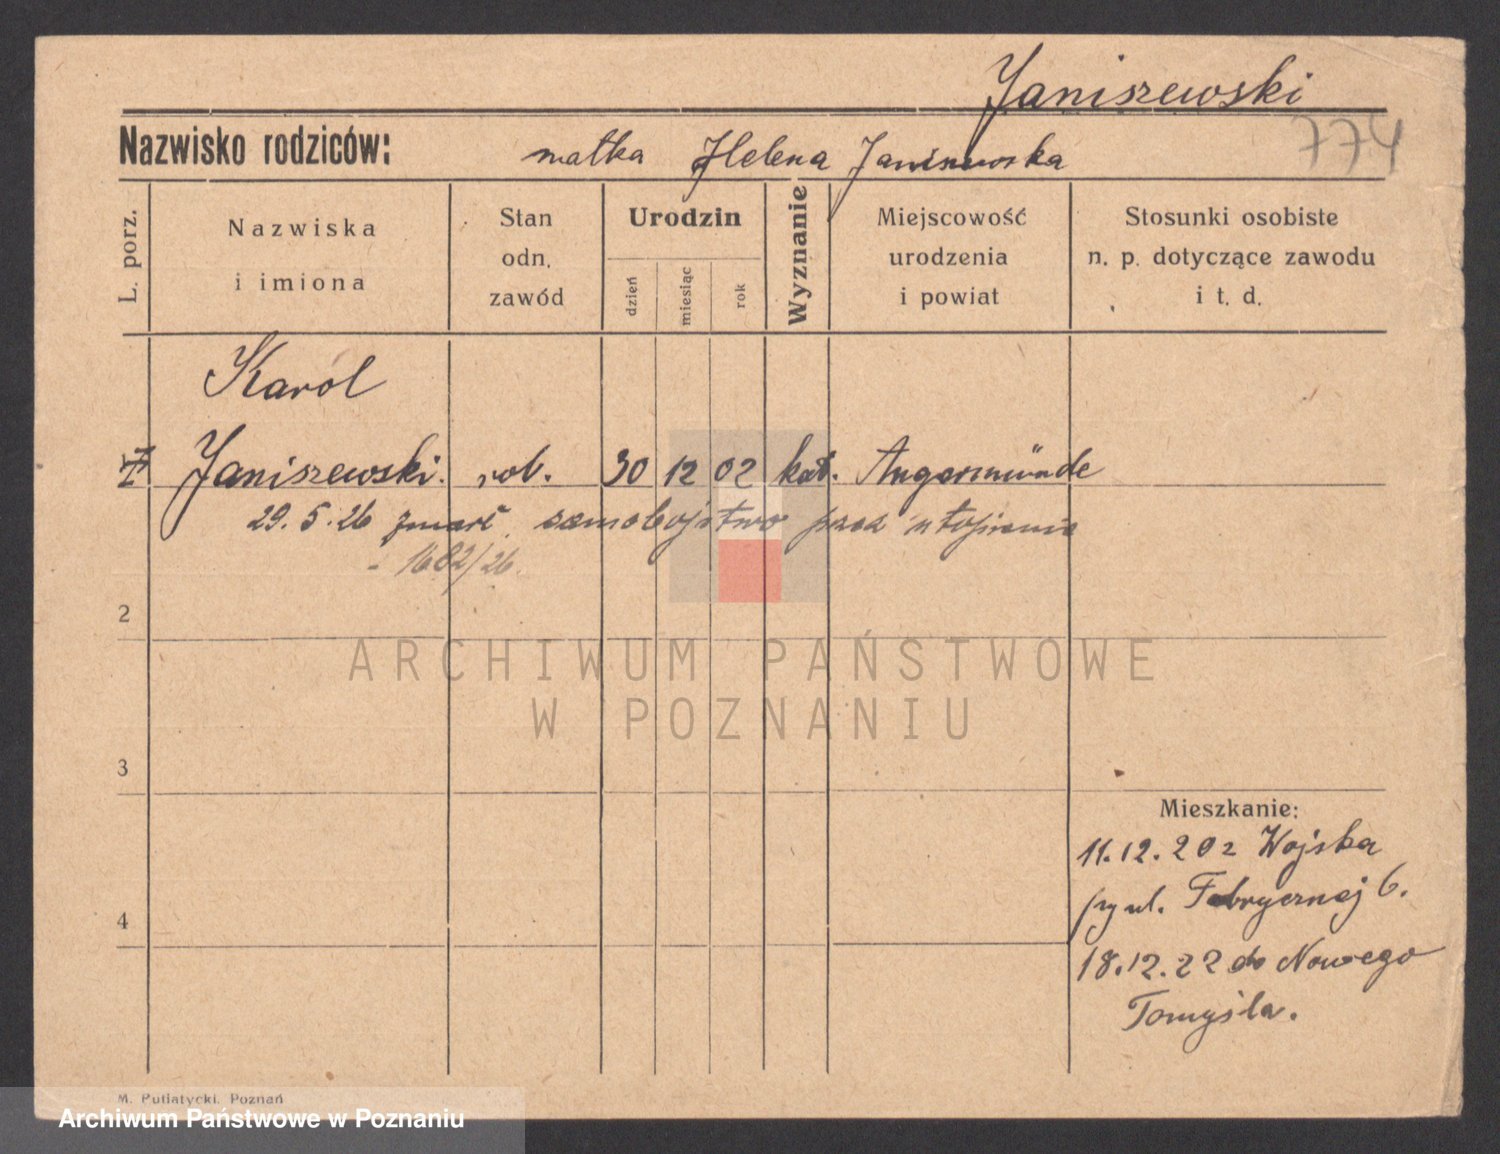 Janiszewski
774
Nazwisko rodziców: matka Helena Janiszewska
L. porz.
Nazwiska
i imiona
Stan
odn.
zawód
Urodzin
dzień
miesiąc
rok
Wyznanie
Miejscowość
urodzenia
i powiat
Stosunki osobiste
n. p. dotyczące zawodu
i t. d.
Karol
Janiszewski. rob. 30 12 02 kat. Angermünde
29. 5. 26 zmarł samobójstwo przez utopienie
- 1682/26.
2
ARCHIWUM PAŃSTWOWE
W POZNANIU
3
Mieszkanie:
11.12.20 z Wojska
4
przy ul. Fabrycznej 6.
18.12.22 do Nowego
Tomyśla.
M. Putiatycki. Poznań
Archiwum Państwowe w Poznaniu